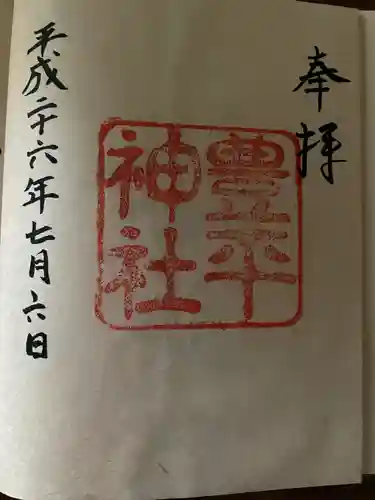 奉拝
豊平
神社
平成二十六年七月六日